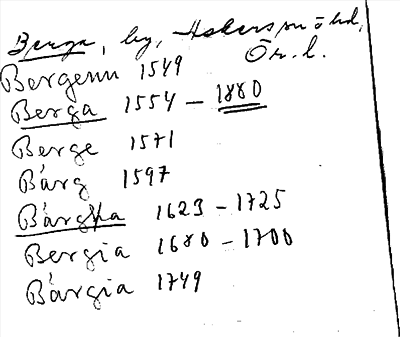 Berga, by, Askers sn o hd,
Ör. l.
Bergenn 1549
Berga 1554 – 1880
Berge 1571
Bärg 1597
Bärgha 1623 – 1725
Bergia 1680 – 1700
Bärgia 1749